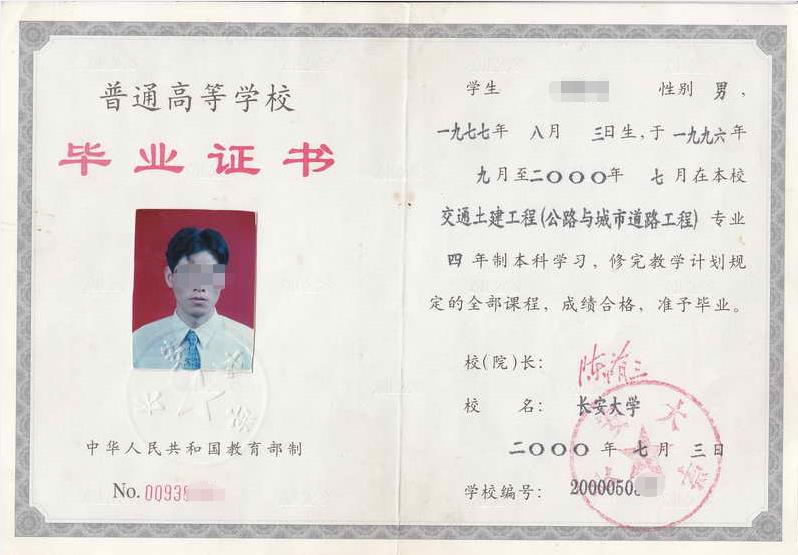 普通高等学校
毕业证书
中华人民共和国教育部制
No. 00938
学生 性别 男，
一九七七年 八月 三日生，于一九九六年
九月至二〇〇〇年 七月在本校
交通土建工程(公路与城市道路工程) 专业
四 年制本科学习，修完教学计划规
定的全部课程，成绩合格，准予毕业。
校(院)长：
校 名： 长安大学
二〇〇〇 年 七 月 三 日
学校编号： 20000503